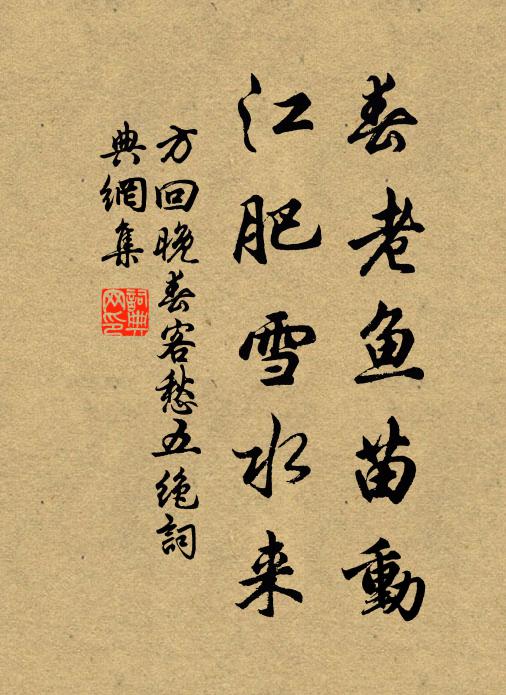 春老鱼苗動
江肥雪水来
方回晚春客愁五绝詞
典網集
詞典网印